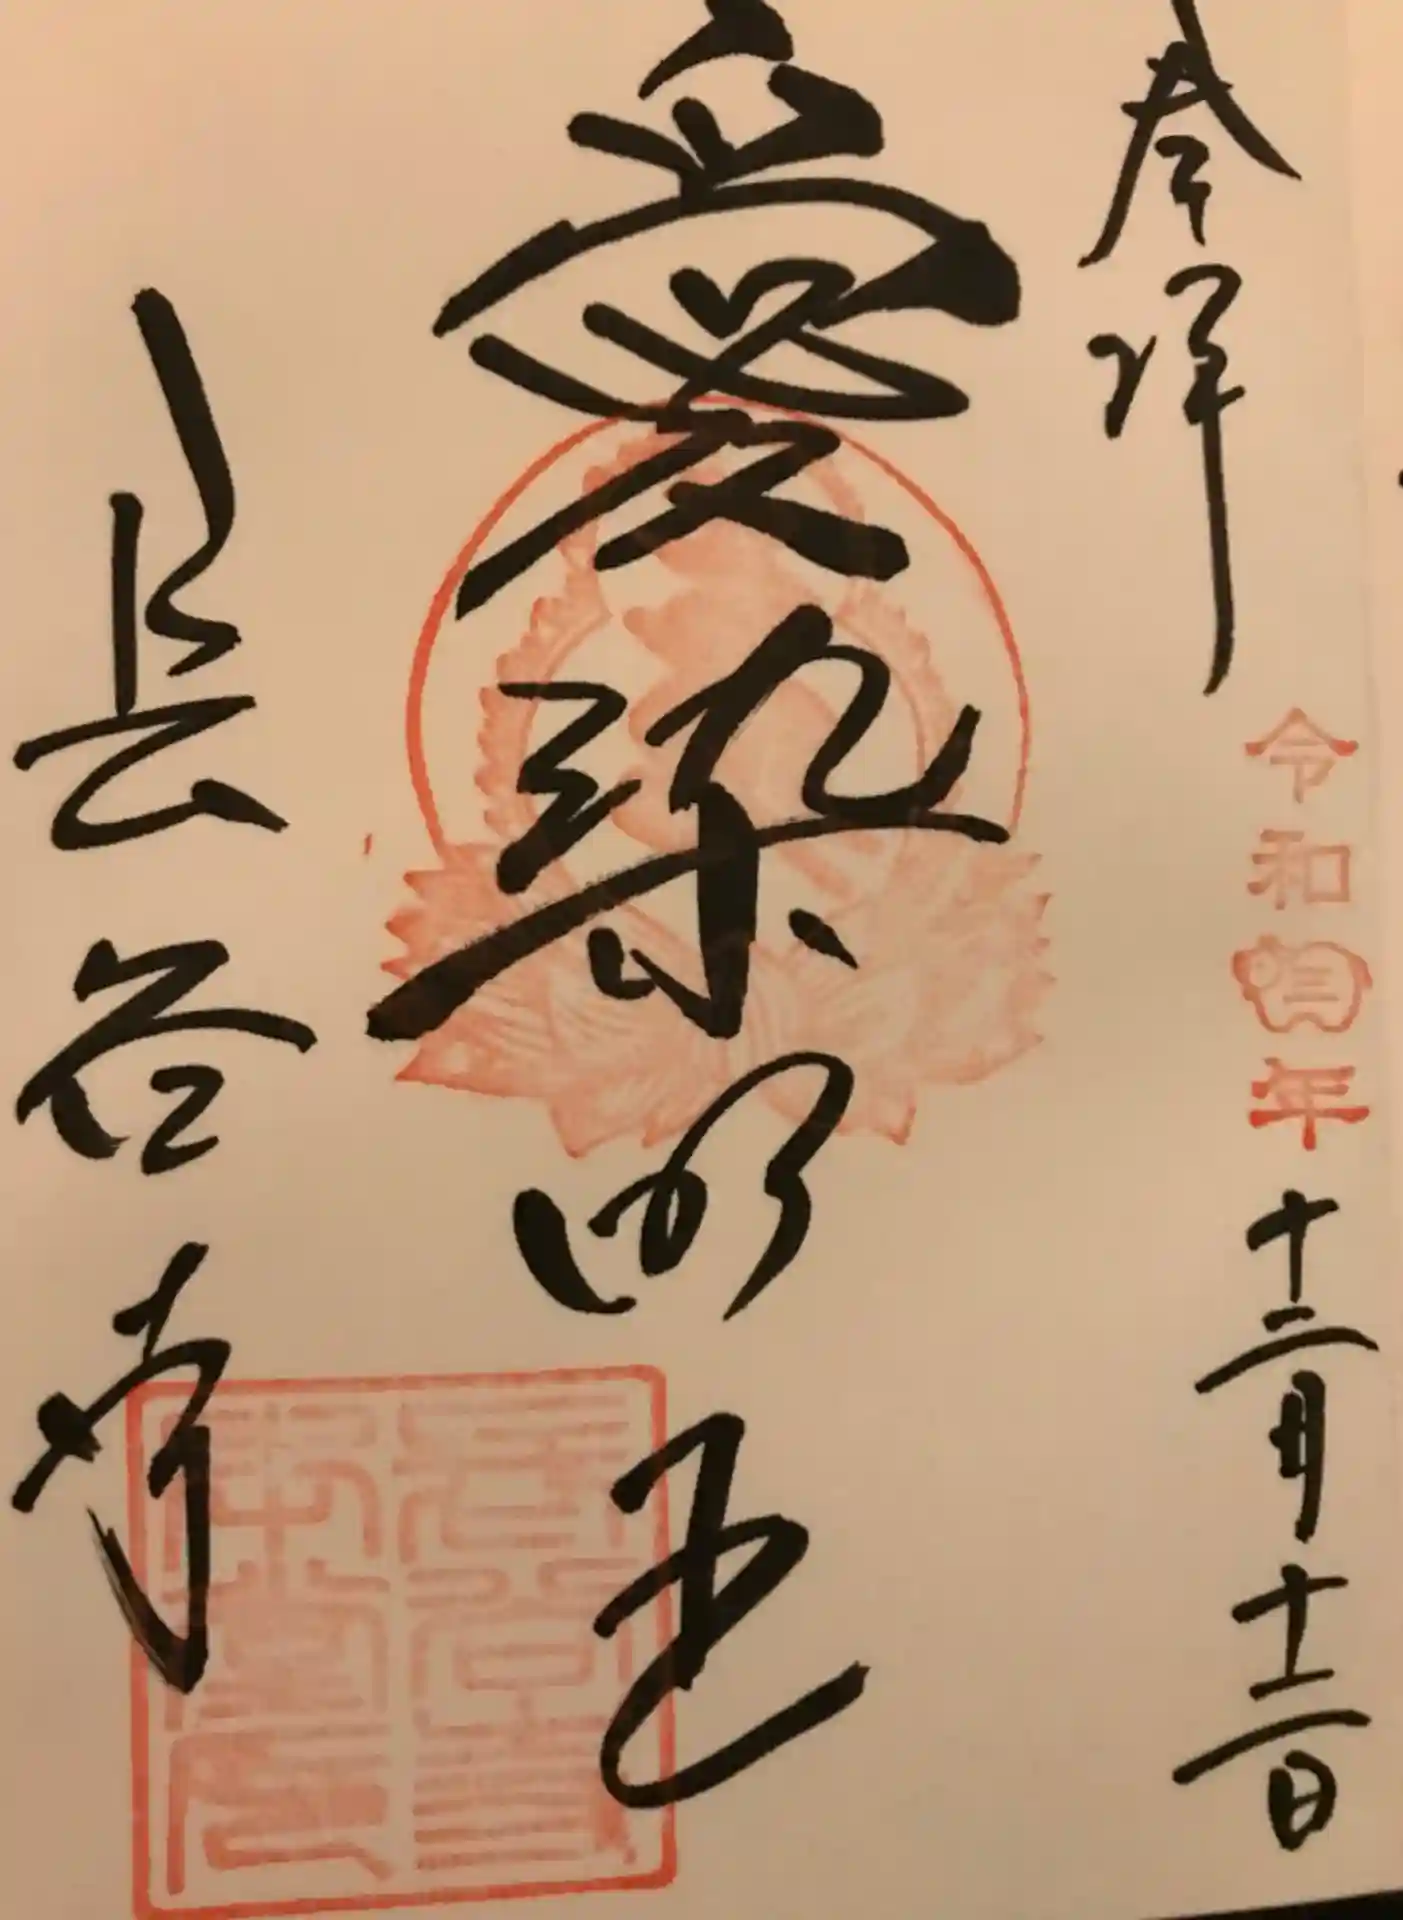 奉拝
令和三年十二月十二日
愛染明王
長谷寺